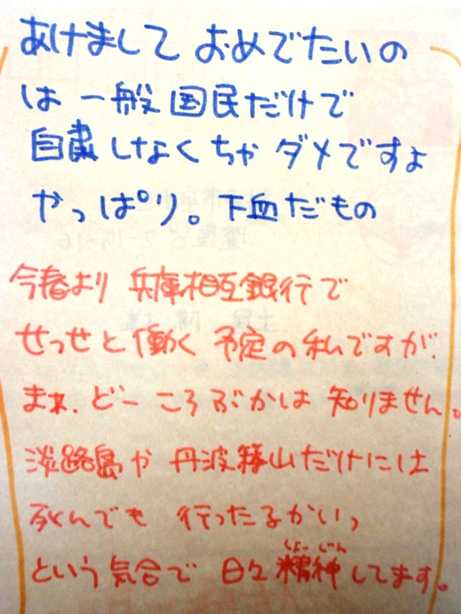 あけまして おめでたいの
は 一般国民だけで
自粛しなくちゃダメですよ
やっぱり。下血だもの
今春より 兵庫相互銀行で
せっせと働く 予定の私ですが、
まぁ、どー ころぶかは 知りません。
淡路島か 丹波篠山だけには
死んでも 行ったるかいっ
しょーじん
という気合で 日々精神してます。